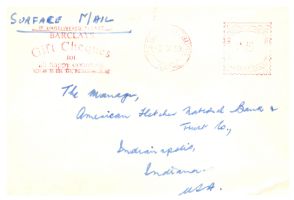 SURFACE MAIL
BARCLAYS
Gift Cheques
The Manager,
American Fletcher National Bank &
Trust Co,
Indianapolis,
Indiana.
USA.